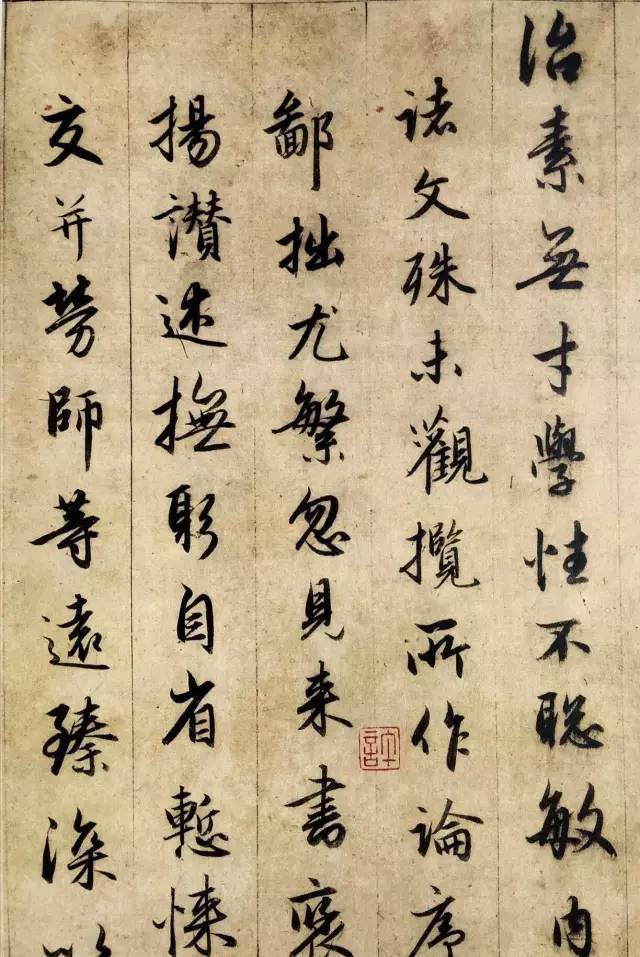 治素無才學性不聡敏内
諸文殊未觀攬所作論序
鄙拙尤繁忽見来書褒
揚讃述撫躬自省慙悚
交并勞師等遠臻深以
許